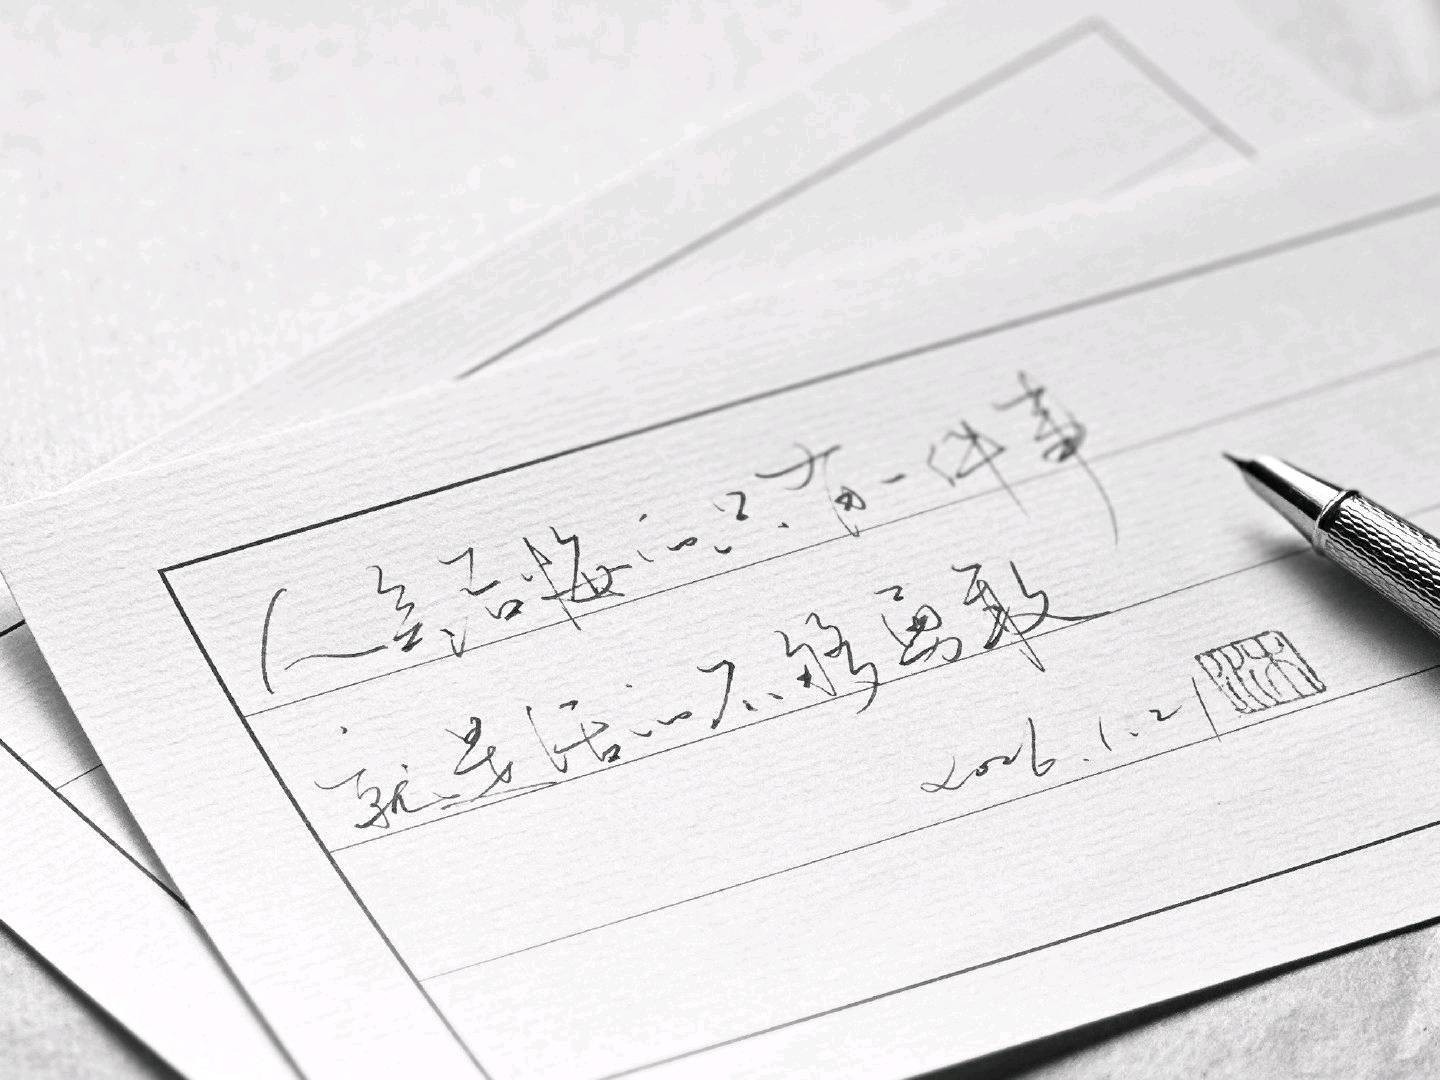 人会后悔的只有一件事
就是活的不够勇敢
2026.1.21